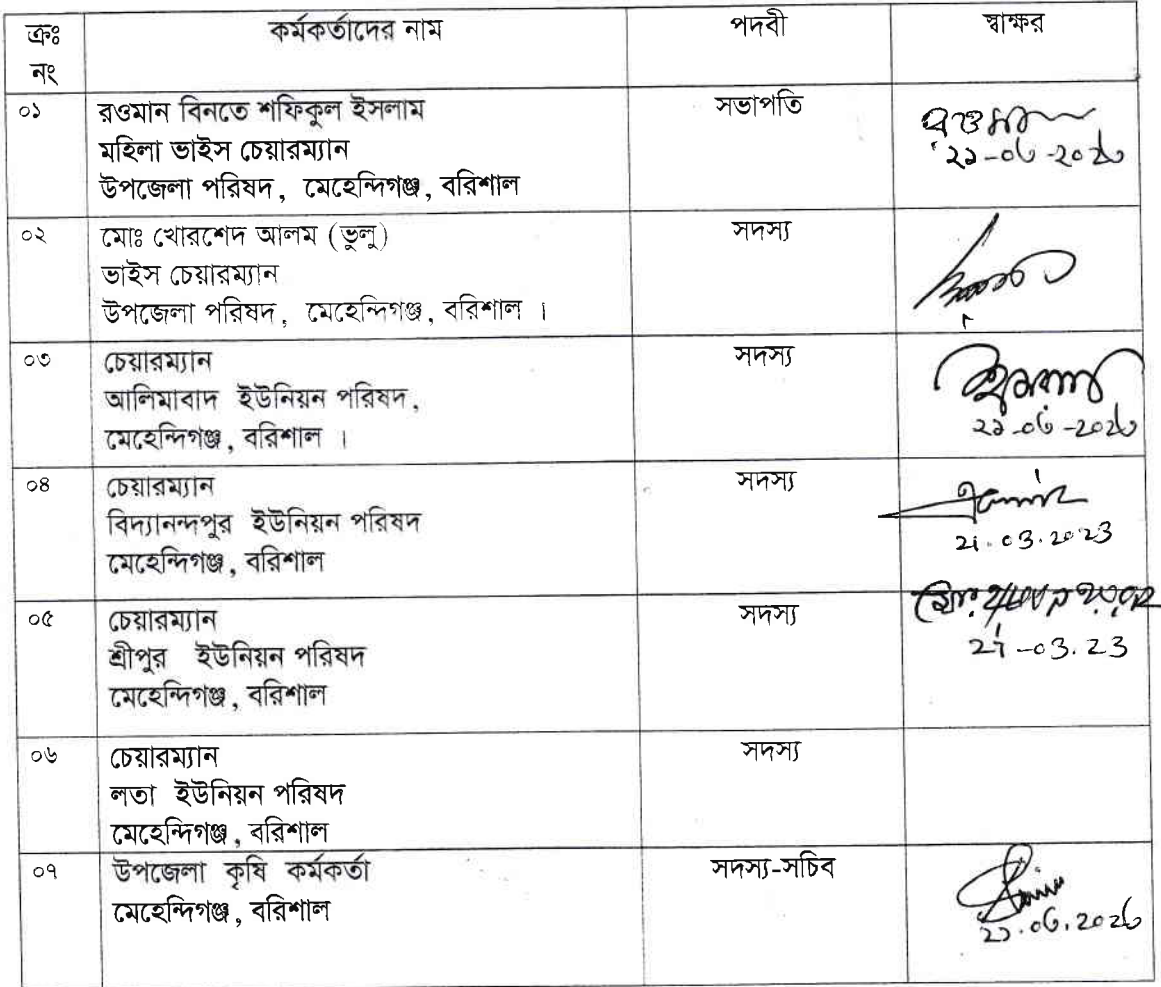 ক্রঃ নং কর্মকর্তাদের নাম পদবী স্বাক্ষর
০১ রওমান বিনতে শফিকুল ইসলাম সভাপতি
মহিলা ভাইস চেয়ারম্যান
উপজেলা পরিষদ, মেহেন্দিগঞ্জ, বরিশাল
২১-০৩-২০২৩
০২ মোঃ খোরশেদ আলম (ভুলু) সদস্য
ভাইস চেয়ারম্যান
উপজেলা পরিষদ, মেহেন্দিগঞ্জ, বরিশাল ।
০৩ চেয়ারম্যান সদস্য
আলিমাবাদ ইউনিয়ন পরিষদ,
মেহেন্দিগঞ্জ, বরিশাল ।
২১-০৩-২০২৩
০৪ চেয়ারম্যান সদস্য
বিদ্যানন্দপুর ইউনিয়ন পরিষদ
মেহেন্দিগঞ্জ, বরিশাল
21.03.2023
০৫ চেয়ারম্যান সদস্য
শ্রীপুর ইউনিয়ন পরিষদ
মেহেন্দিগঞ্জ, বরিশাল
21-03.23
০৬ চেয়ারম্যান সদস্য
লতা ইউনিয়ন পরিষদ
মেহেন্দিগঞ্জ, বরিশাল
০৭ উপজেলা কৃষি কর্মকর্তা সদস্য-সচিব
মেহেন্দিগঞ্জ, বরিশাল
২১.০৩.২০২৩